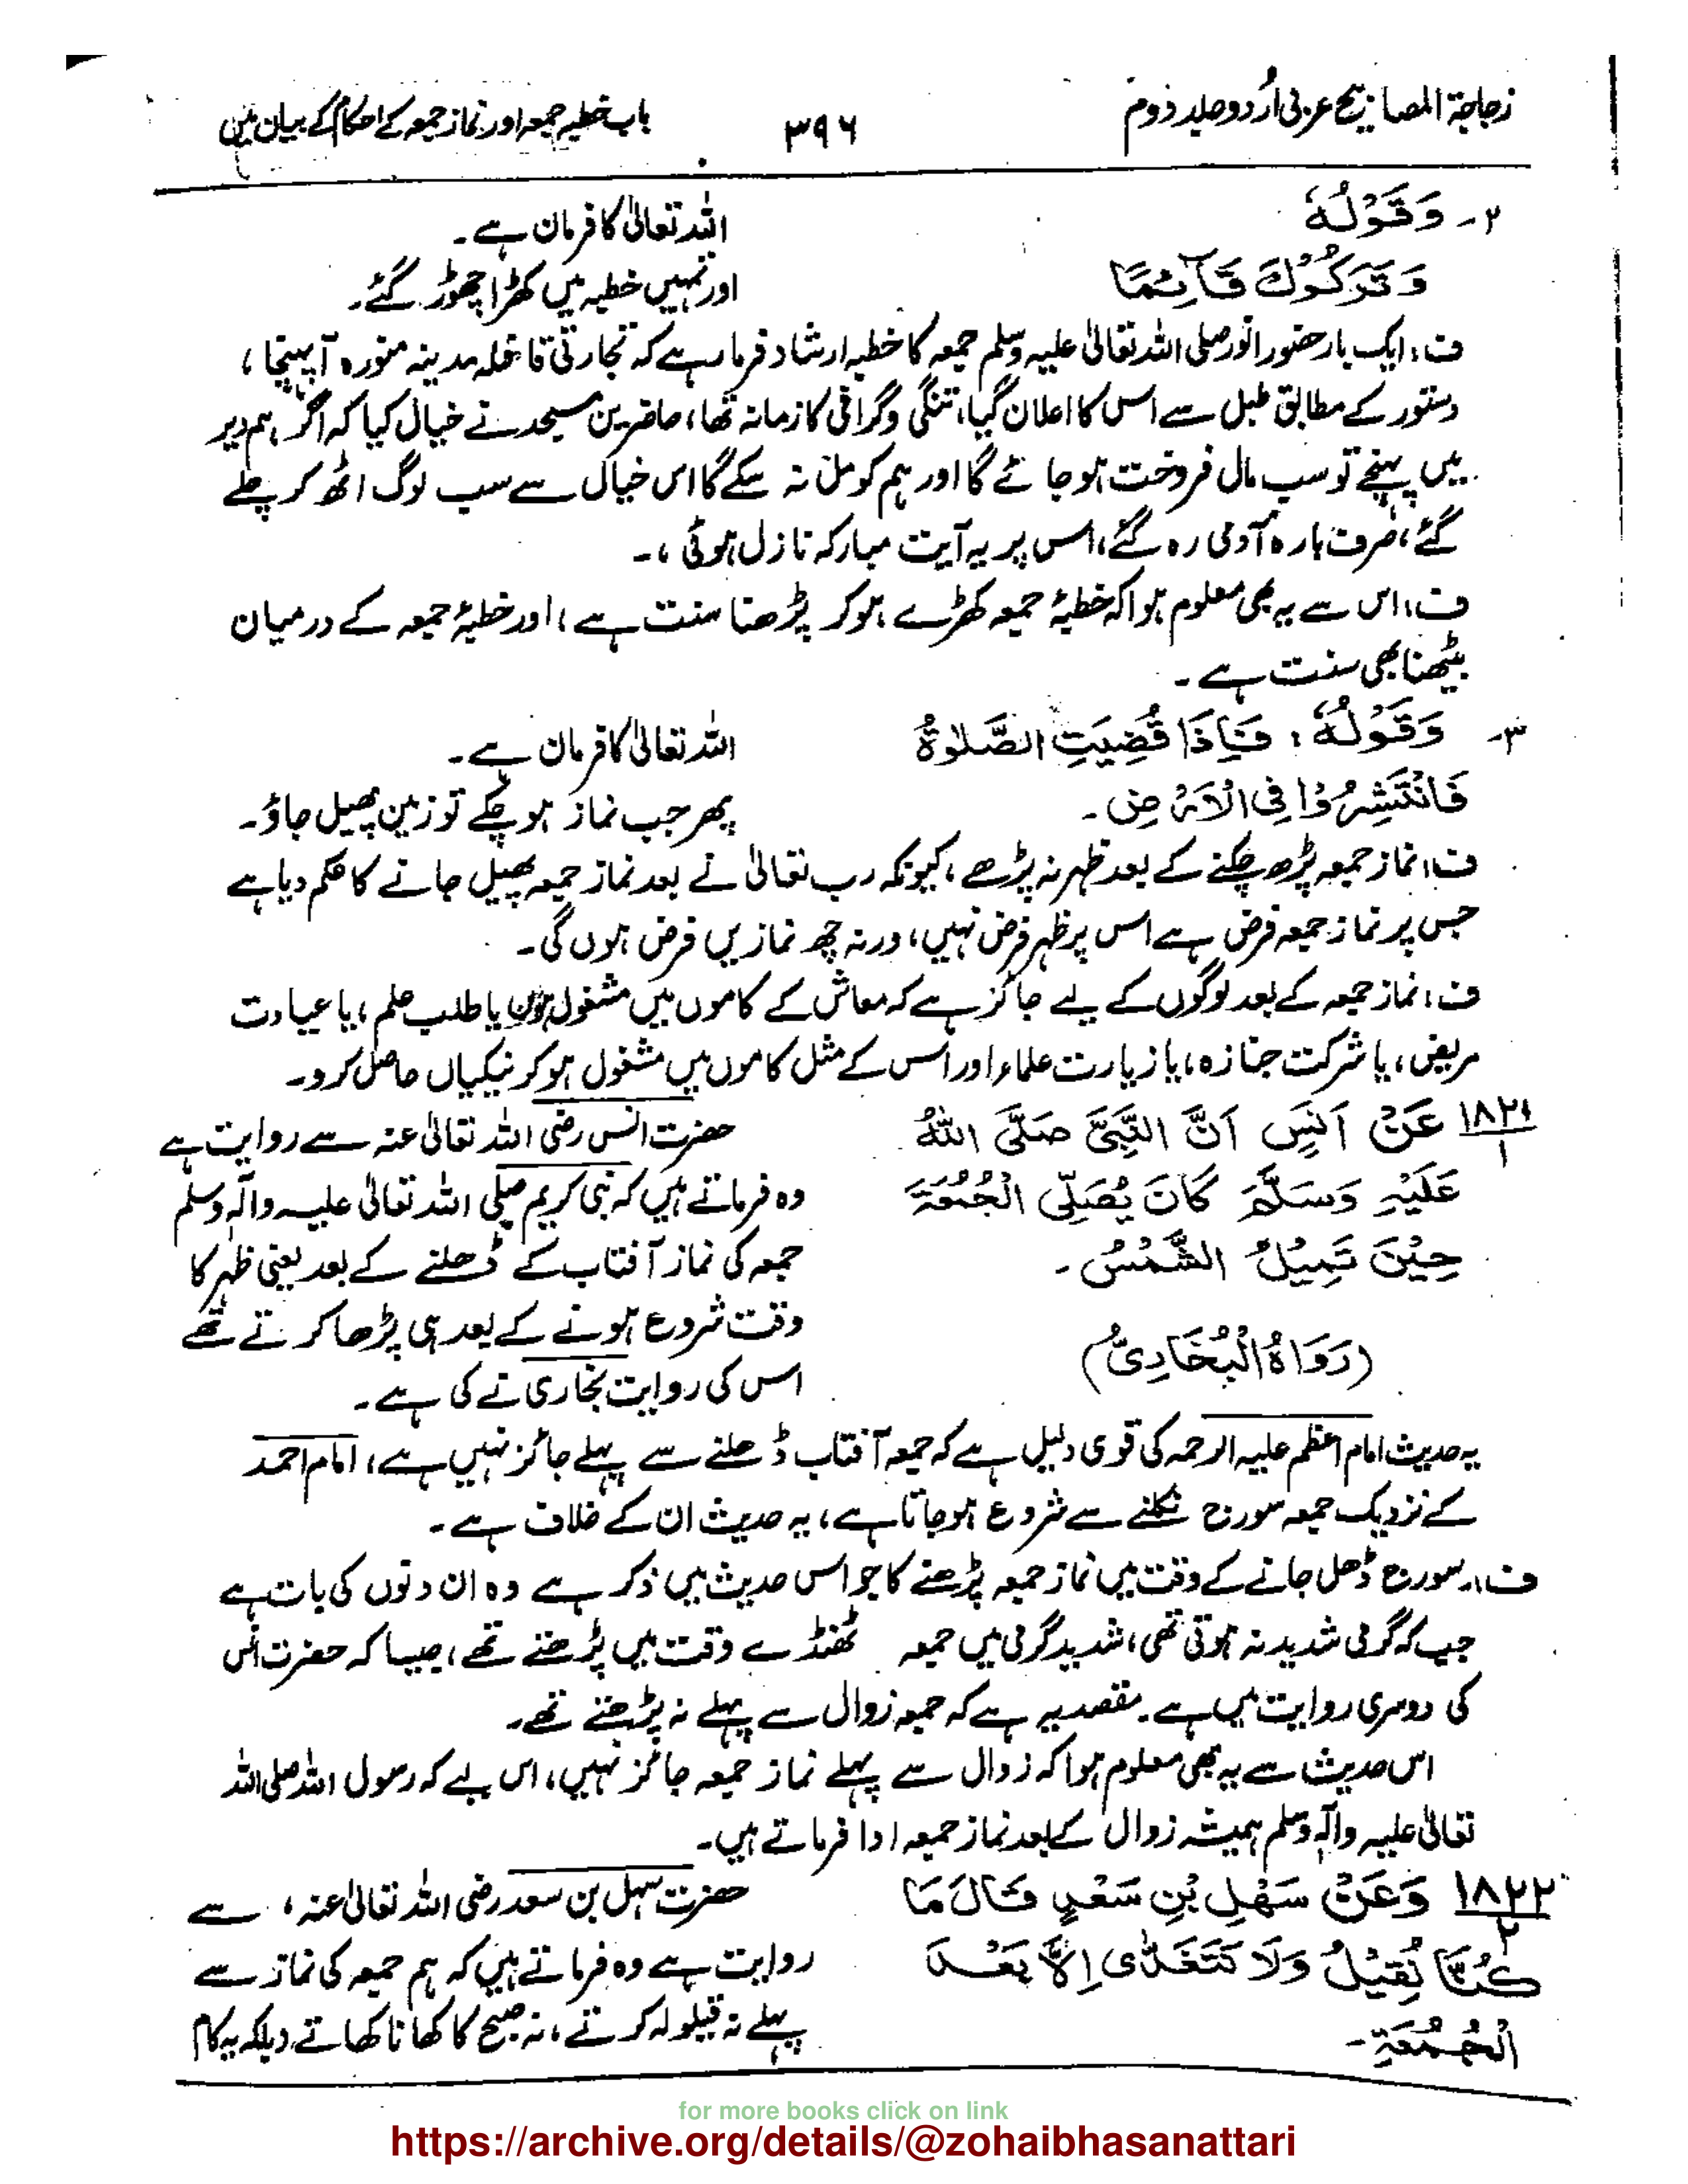 زجاجۃ المصابیح عربی اُردو جلد دوم
۳۹۶
باب خطبہ جمعہ اور نماز جمعہ کے احکام کے بیان میں
۲۔ وَقَوْلُهٗ
وَتَرَكُوْكَ قَآئِمًا
اللہ تعالیٰ کا فرمان ہے۔
اور تمہیں خطبہ میں کھڑا چھوڑ گئے۔
ف: ایک بار حضور انور صلی اللہ تعالیٰ علیہ وسلم جمعہ کا خطبہ ارشاد فرما رہے کہ تجارتی قافلہ مدینہ منورہ آپہنچا،
دستور کے مطابق طبل سے اس کا اعلان گیا، تنگی و گرانی کا زمانہ تھا، حاضرین مسجد نے خیال کیا کہ اگر ہم دیر
میں پہنچے تو سب مال فروخت ہو جائے گا اور ہم کو مل نہ سکے گا اس خیال سے سب لوگ اٹھ کر چلے
گئے، صرف بارہ آدمی رہ گئے، اس پر یہ آیت مبارکہ نازل ہوئی،۔
ف: اس سے یہ بھی معلوم ہوا کہ خطبۂ جمعہ کھڑے ہو کر پڑھنا سنت ہے، اور خطبۂ جمعہ کے درمیان
بیٹھنا بھی سنت ہے۔
۳۔ وَقَوْلُهٗ: فَاِذَا قُضِيَتِ الصَّلٰوةُ
فَانْتَشِرُوْا فِى الْاَرْضِ۔
اللہ تعالیٰ کا فرمان ہے۔
پھر جب نماز ہو چکے تو زمین پھیل جاؤ۔
ف: نماز جمعہ پڑھ چکنے کے بعد ظہر نہ پڑھے، کیونکہ رب تعالیٰ نے بعد نماز جمعہ پھیل جانے کا حکم دیا ہے
جس پر نماز جمعہ فرض ہے اس پر ظہر فرض نہیں، ورنہ چھ نمازیں فرض ہوں گی۔
ف: نماز جمعہ کے بعد لوگوں کے لیے جائز ہے کہ معاش کے کاموں میں مشغول ہوں یا طلب علم، یا عیادت
مریض، یا شرکت جنازہ، یا زیارت علماء اور اس کے مثل کاموں میں مشغول ہو کر نیکیاں حاصل کرو۔
۱۸۲۱
۱
عَنْ اَنَسٍ اَنَّ النَّبِيَّ صَلَّى اللّٰهُ
عَلَيْهِ وَسَلَّمَ كَانَ يُصَلِّى الْجُمُعَةَ
حِيْنَ تَمِيْلُ الشَّمْسُ۔
(رَوَاهُ الْبُخَارِيُّ)
حضرت انس رضی اللہ تعالیٰ عنہ سے روایت ہے
وہ فرماتے ہیں کہ نبی کریم صلی اللہ تعالیٰ علیہ واٰلہ وسلم
جمعہ کی نماز آفتاب کے ڈھلنے کے بعد یعنی ظہر کا
وقت شروع ہونے کے بعد ہی پڑھا کرتے تھے
اس کی روایت بخاری نے کی ہے۔
یہ حدیث امام اعظم علیہ الرحمہ کی قوی دلیل ہے کہ جمعہ آفتاب ڈھلنے سے پہلے جائز نہیں ہے، امام احمد
کے نزدیک جمعہ سورج نکلنے سے شروع ہو جاتا ہے، یہ حدیث ان کے خلاف ہے۔
ف:۔ سورج ڈھل جانے کے وقت میں نماز جمعہ پڑھنے کا جو اس حدیث میں ذکر ہے وہ ان دنوں کی بات ہے
جب کہ گرمی شدید نہ ہوتی تھی، شدید گرمی میں جمعہ ٹھنڈے وقت میں پڑھتے تھے، جیسا کہ حضرت انس
کی دوسری روایت میں ہے۔ مقصد یہ ہے کہ جمعہ زوال سے پہلے نہ پڑھتے تھے۔
اس حدیث سے یہ بھی معلوم ہوا کہ زوال سے پہلے نماز جمعہ جائز نہیں، اس لیے کہ رسول اللہ صلی اللہ
تعالیٰ علیہ واٰلہ وسلم ہمیشہ زوال کے بعد نماز جمعہ ادا فرماتے ہیں۔
۱۸۲۲
۲
وَعَنْ سَهْلِ بْنِ سَعْدٍ قَالَ مَا
كُنَّا نُقِيْلُ وَلَا نَتَغَدّٰى اِلَّا بَعْدَ
الْجُمُعَةِ۔
حضرت سہل بن سعد رضی اللہ تعالیٰ عنہ، سے
روایت ہے وہ فرماتے ہیں کہ ہم جمعہ کی نماز سے
پہلے نہ قیلولہ کرتے، نہ صبح کا کھانا کھاتے (بلکہ یہ کام
for more books click on link
https://archive.org/details/@zohaibhasanattari